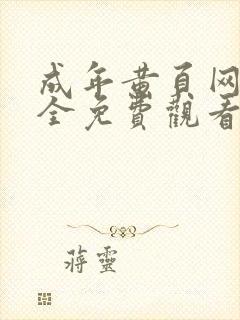 成年黄頁网
全免費觀看
蔣靈